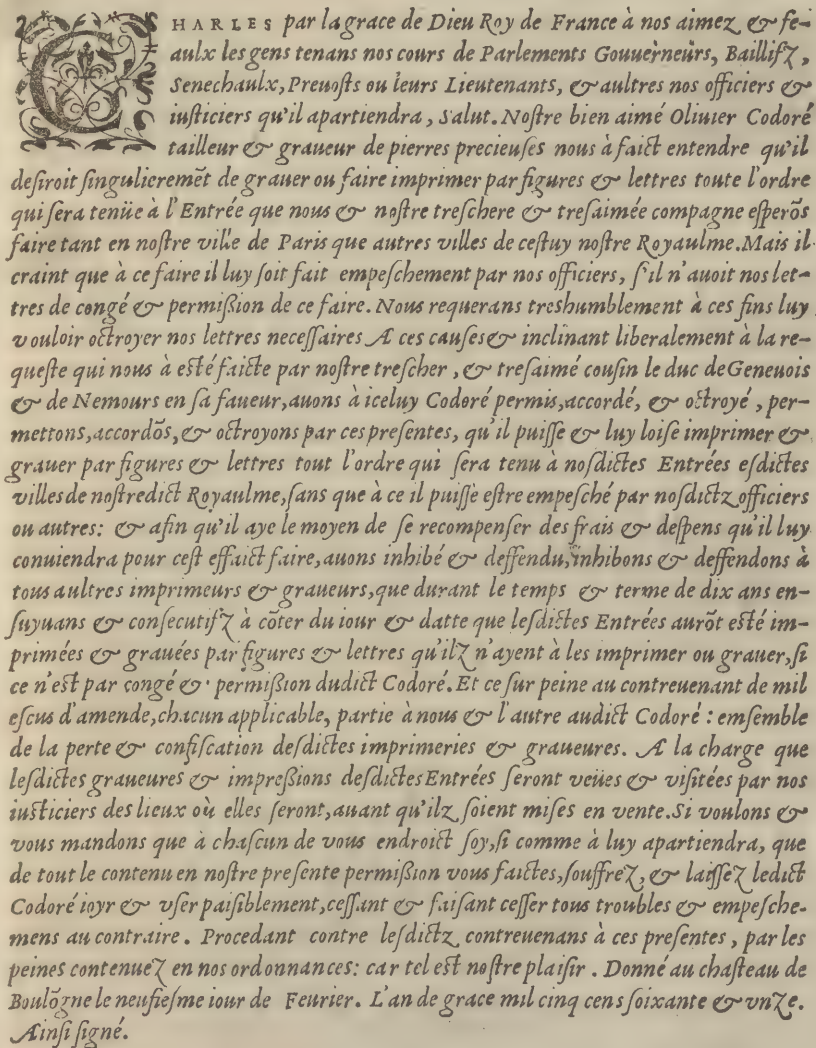 CHARLES par la grace de Dieu Roy de France à nos aimez & fe-
aulx les gens tenans nos cours de Parlements Gouuerneurs, Baillifz,
Senechaulx, Preuosts ou leurs Lieutenants, & aultres nos officiers &
iusticiers qu'il apartiendra, Salut. Nostre bien aimé Oliuier Codoré
tailleur & graueur de pierres precieuses nous à faict entendre qu'il
desiroit singulieremẽt de grauer ou faire imprimer par figures & lettres toute l'ordre
qui sera tenüe à l'Entrée que nous & nostre treschere & tresaimée compagne esperõs
faire tant en nostre ville de Paris que autres villes de cestuy nostre Royaulme. Mais il
craint que à ce faire il luy soit fait empeschement par nos officiers, s'il n'auoit nos let-
tres de congé & permißion de ce faire. Nous requerans treshumblement à ces fins luy
vouloir octroyer nos lettres necessaires A ces causes & inclinant liberalement à la re-
queste qui nous à esté faicte par nostre trescher, & tresaimé cousin le duc de Geneuois
& de Nemours en sa faueur, auons à iceluy Codoré permis, accordé, & octroyé, per-
mettons, accordõs, & octroyons par ces presentes, qu'il puisse & luy loise imprimer &
grauer par figures & lettres tout l'ordre qui sera tenu à nosdictes Entrées esdictes
villes de nostredict Royaulme, sans que à ce il puisse estre empesché par nosdictz officiers
ou autres: & afin qu'il aye le moyen de se recompenser des frais & despens qu'il luy
conuiendra pour cest effaict faire, auons inhibé & deffendu, inhibons & deffendons à
tous aultres imprimeurs & graueurs, que durant le temps & terme de dix ans en-
suyuans & consecutifz à cõter du iour & datte que lesdictes Entrées aurõt esté im-
primées & grauées par figures & lettres qu'ilz n'ayent à les imprimer ou grauer, si
ce n'est par congé & permißion dudict Codoré. Et ce sur peine au contreuenant de mil
escus d'amende, chacun applicable, partie à nous & l'autre audict Codoré: emsemble
de la perte & confiscation desdictes imprimeries & graueures. A la charge que
lesdictes graueures & impreßions desdictes Entrées seront veües & visitées par nos
iusticiers des lieux où elles seront, auant qu'ilz soient mises en vente. Si voulons &
vous mandons que à chascun de vous endroict soy, si comme à luy apartiendra, que
de tout le contenu en nostre presente permißion vous faictes, souffrez, & laissez ledict
Codoré ioyr & vser paisiblement, cessant & faisant cesser tous troubles & empesche-
mens au contraire. Procedant contre lesdictz contreuenans à ces presentes, par les
peines contenuez en nos ordonnances: car tel est nostre plaisir. Donné au chasteau de
Boulõgne le neufiesme iour de Feurier. L'an de grace mil cinq cens soixante & vnze.
Ainsi signé.